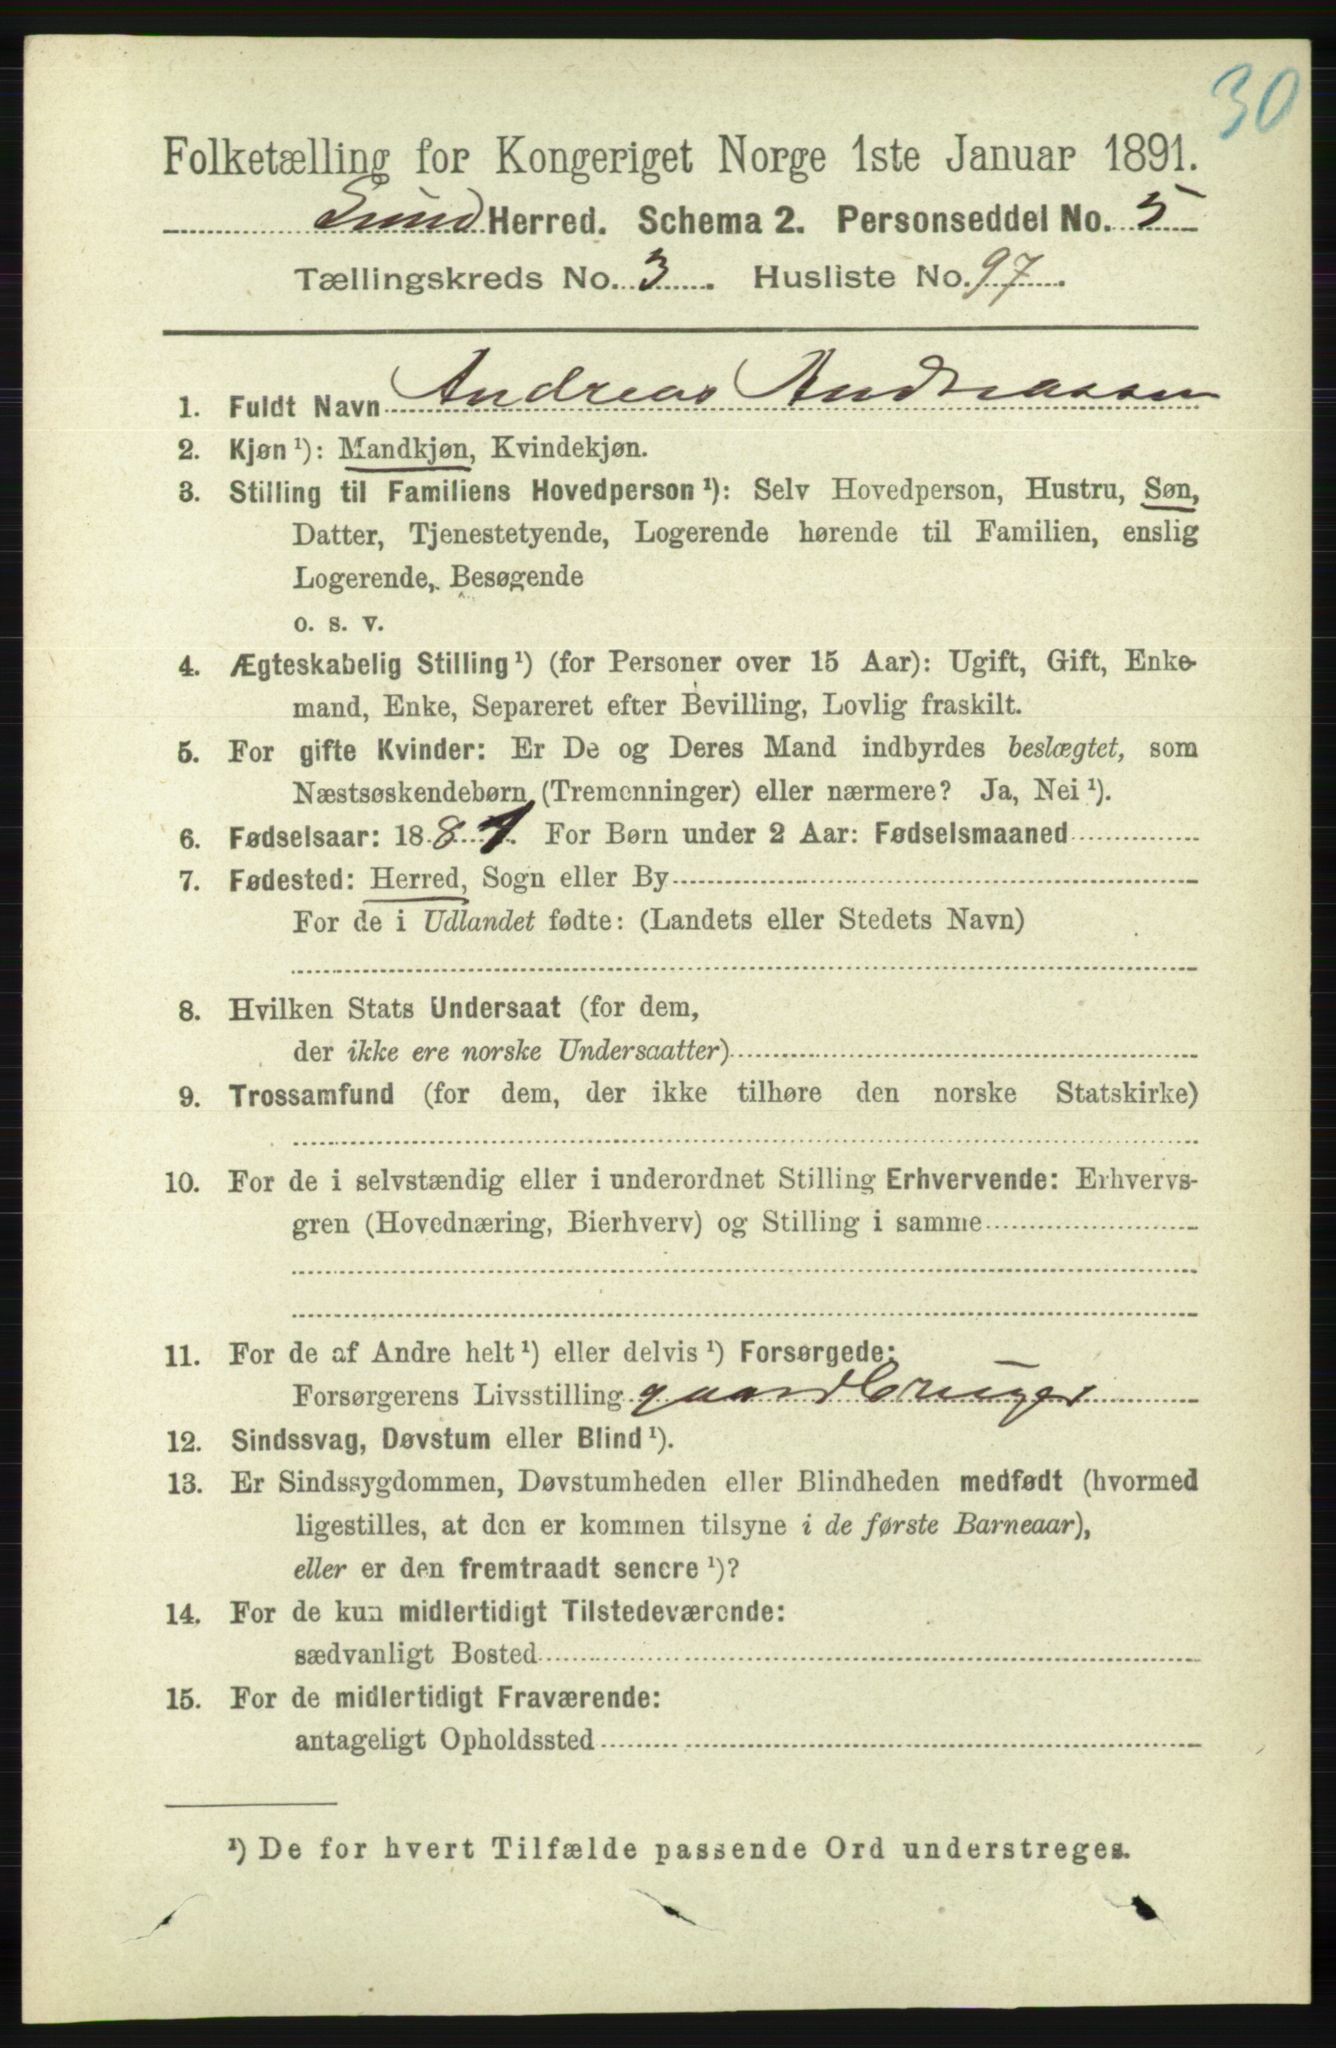 30
Folketælling for Kongeriget Norge 1ste Januar 1891.
Sund Herred. Schema 2. Personseddel No. 5
Tællingskreds No. 3. Husliste No. 97.
1. Fuldt Navn Andreas Andreassen
2. Kjøn ¹): Mandkjøn, Kvindekjøn.
3. Stilling til Familiens Hovedperson ¹): Selv Hovedperson, Hustru, Søn,
Datter, Tjenestetyende, Logerende hørende til Familien, enslig
Logerende, Besøgende
o. s. v.
4. Ægteskabelig Stilling ¹) (for Personer over 15 Aar): Ugift, Gift, Enke-
mand, Enke, Separeret efter Bevilling, Lovlig fraskilt.
5. For gifte Kvinder: Er De og Deres Mand indbyrdes beslægtet, som
Næstsøskendebørn (Tremenninger) eller nærmere? Ja, Nei ¹).
6. Fødselsaar: 1887. For Børn under 2 Aar: Fødselsmaaned
7. Fødested: Herred, Sogn eller By
For de i Udlandet fødte: (Landets eller Stedets Navn)
8. Hvilken Stats Undersaat (for dem,
der ikke ere norske Undersaatter)
9. Trossamfund (for dem, der ikke tilhøre den norske Statskirke)
10. For de i selvstændig eller i underordnet Stilling Erhvervende: Erhvervs-
gren (Hovednæring, Bierhverv) og Stilling i samme
11. For de af Andre helt ¹) eller delvis ¹) Forsørgede:
Forsørgerens Livsstilling gaardbruger
12. Sindssvag, Døvstum eller Blind ¹).
13. Er Sindssygdommen, Døvstumheden eller Blindheden medfødt (hvormed
ligestilles, at den er kommen tilsyne i de første Barneaar),
eller er den fremtraadt senere ¹)?
14. For de kun midlertidigt Tilstedeværende:
sædvanligt Bosted
15. For de midlertidigt Fraværende:
antageligt Opholdssted
¹) De for hvert Tilfælde passende Ord understreges.